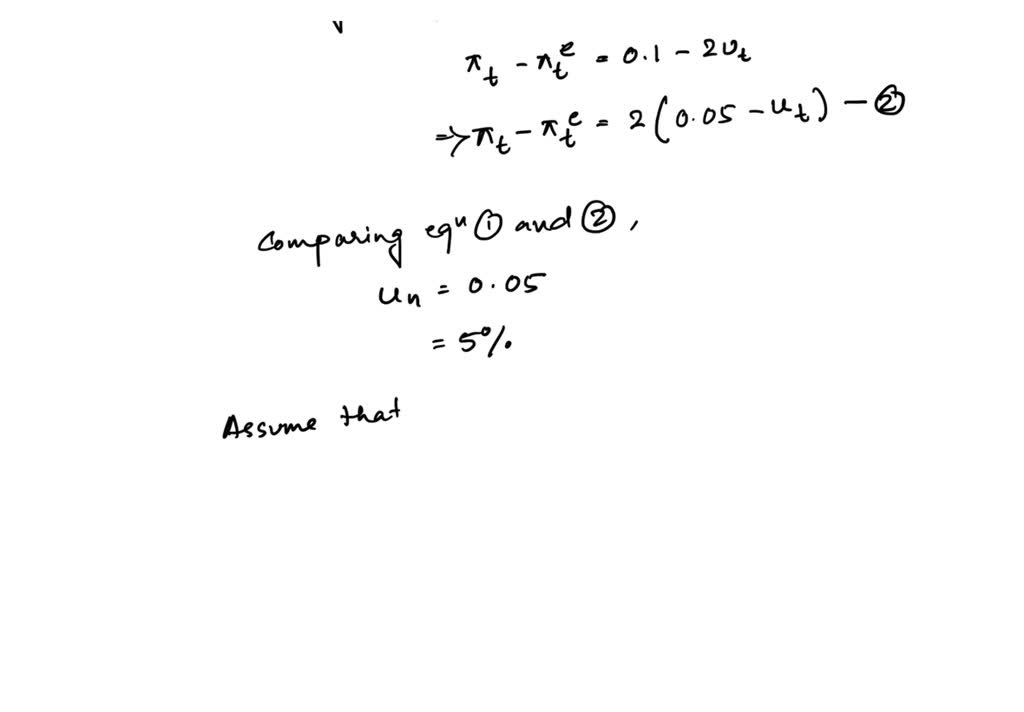 π_t - π_t^e = 0.1 - 2u_t
⇒ π_t - π_t^e = 2(0.05 - u_t) - ②
Comparing eqⁿ ① and ②,
u_n = 0.05
= 5%
Assume that